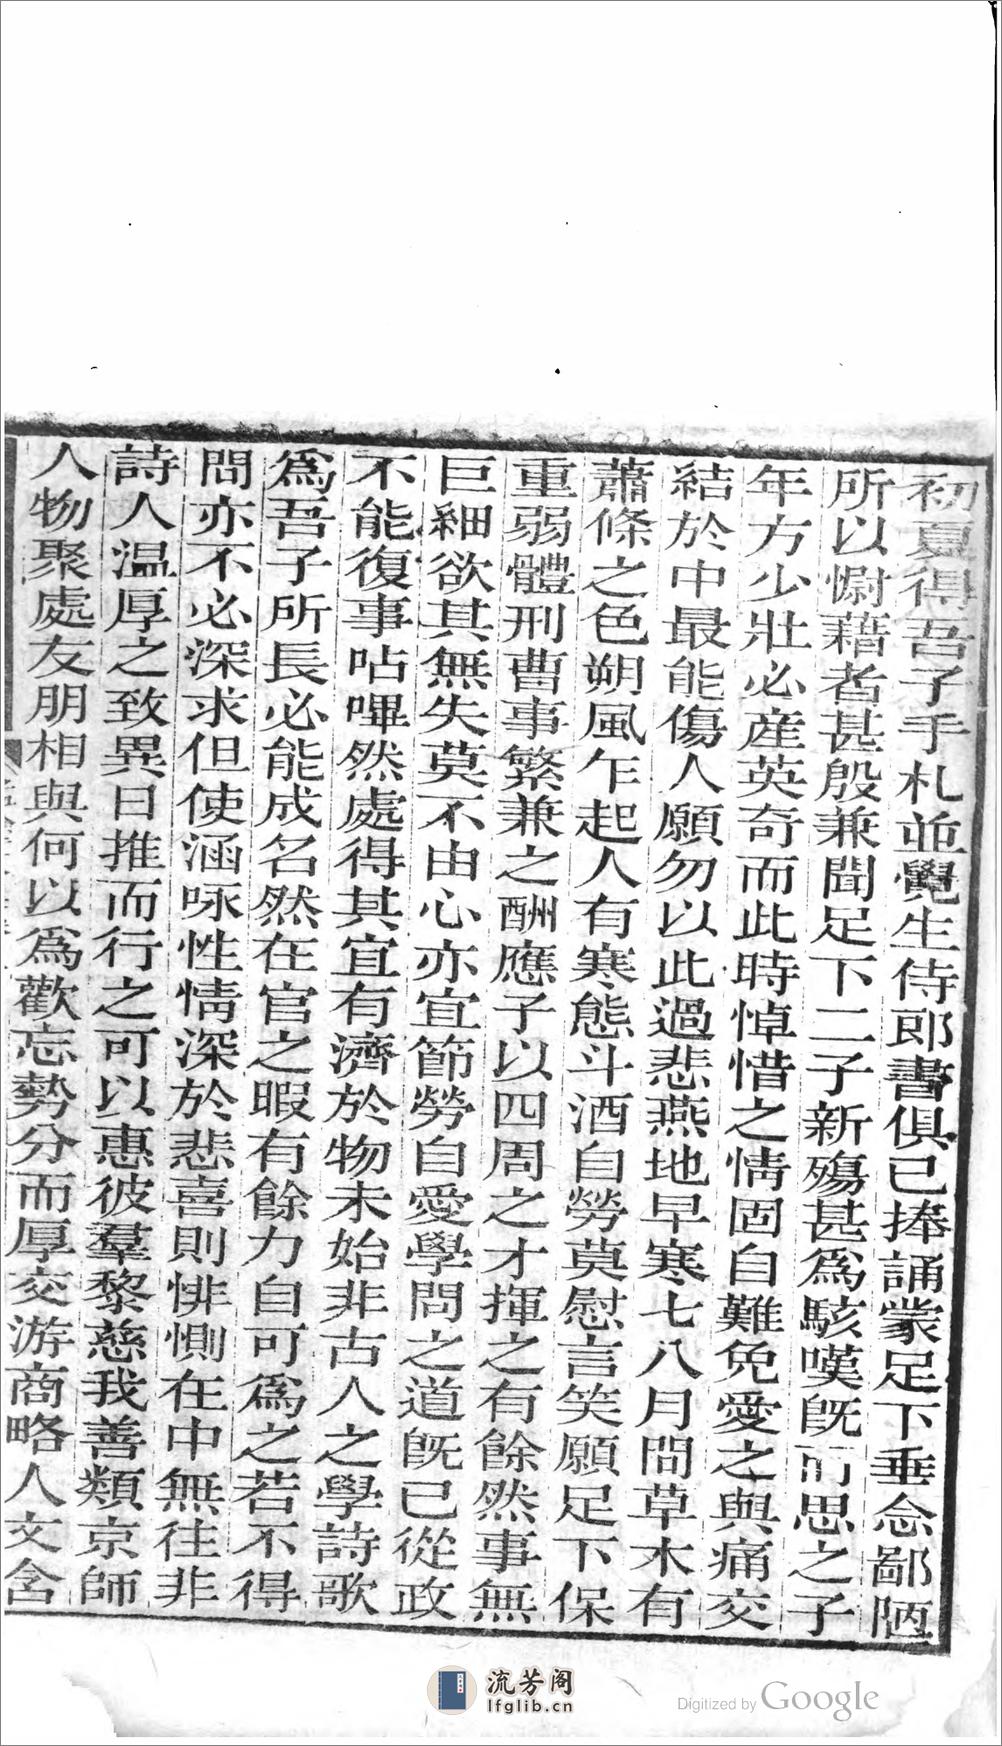 初夏得吾子手札並覺生侍郎書俱已捧誦蒙足下垂念鄙陋
所以慰藉者甚殷兼聞足下二子新殤甚爲駭嘆旣而思之子
年方少壯必産英奇而此時悼惜之情固自難免愛之與痛交
結於中最能傷人願勿以此過悲燕地早寒七八月間草木有
蕭條之色朔風乍起人有寒態斗酒自勞莫慰言笑願足下保
重弱體刑曹事繁兼之酬應子以四周之才揮之有餘然事無
巨細欲其無失莫不由心亦宜節勞自愛學問之道旣已從政
不能復事呫嗶然處得其宜有濟於物未始非古人之學詩歌
爲吾子所長必能成名然在官之暇有餘力自可爲之若不得
閒亦不必深求但使涵咏性情深於悲喜則悱惻在中無往非
詩人温厚之致異日推而行之可以惠彼羣黎慈我善類京師
人物聚處友朋相與何以爲歡忘勢分而厚交游商略人文含
流芳阁
lfglib.cn
Digitized by Google